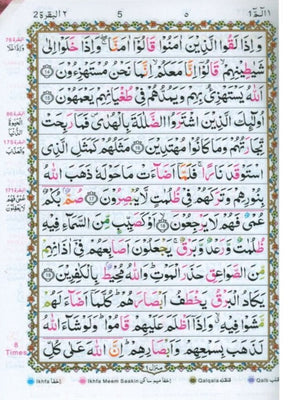 البقرة ٢ 5 ٥ الٓمّٓ ١
وَاِذَا لَقُوا الَّذِيْنَ اٰمَنُوْا قَالُوْٓا اٰمَنَّا ۖ وَاِذَا خَلَوْا اِلٰى
شَيٰطِيْنِهِمْ ۙ قَالُوْٓا اِنَّا مَعَكُمْ ۙ اِنَّمَا نَحْنُ مُسْتَهْزِءُوْنَ ﴿١٤﴾
اَللّٰهُ يَسْتَهْزِئُ بِهِمْ وَيَمُدُّهُمْ فِيْ طُغْيَانِهِمْ يَعْمَهُوْنَ ﴿١٥﴾
اُولٰٓئِكَ الَّذِيْنَ اشْتَرَوُا الضَّلٰلَةَ بِالْهُدٰى ۖ فَمَا رَبِحَتْ
تِّجَارَتُهُمْ وَمَا كَانُوْا مُهْتَدِيْنَ ﴿١٦﴾ مَثَلُهُمْ كَمَثَلِ الَّذِى
اسْتَوْقَدَ نَارًا ۚ فَلَمَّآ اَضَآءَتْ مَا حَوْلَهٗ ذَهَبَ اللّٰهُ
بِنُوْرِهِمْ وَتَرَكَهُمْ فِيْ ظُلُمٰتٍ لَّا يُبْصِرُوْنَ ﴿١٧﴾ صُمٌّۢ بُكْمٌ
عُمْىٌ فَهُمْ لَا يَرْجِعُوْنَ ﴿١٨﴾ اَوْ كَصَيِّبٍ مِّنَ السَّمَآءِ فِيْهِ
ظُلُمٰتٌ وَّرَعْدٌ وَّبَرْقٌ ۚ يَجْعَلُوْنَ اَصَابِعَهُمْ فِيْٓ اٰذَانِهِمْ
مِّنَ الصَّوَاعِقِ حَذَرَ الْمَوْتِ ۗ وَاللّٰهُ مُحِيْطٌۢ بِالْكٰفِرِيْنَ ﴿١٩﴾
يَكَادُ الْبَرْقُ يَخْطَفُ اَبْصَارَهُمْ ۗ كُلَّمَآ اَضَآءَ لَهُمْ
مَّشَوْا فِيْهِ ۙ وَاِذَآ اَظْلَمَ عَلَيْهِمْ قَامُوْا ۗ وَلَوْ شَآءَ اللّٰهُ
لَذَهَبَ بِسَمْعِهِمْ وَاَبْصَارِهِمْ ۗ اِنَّ اللّٰهَ عَلٰى كُلِّ
8
Times
منزل ١
Ikhfa اخفا Ikhfa Meem Saakin اخفا میم ساکن Qalqala قلقلہ Qalb قلب